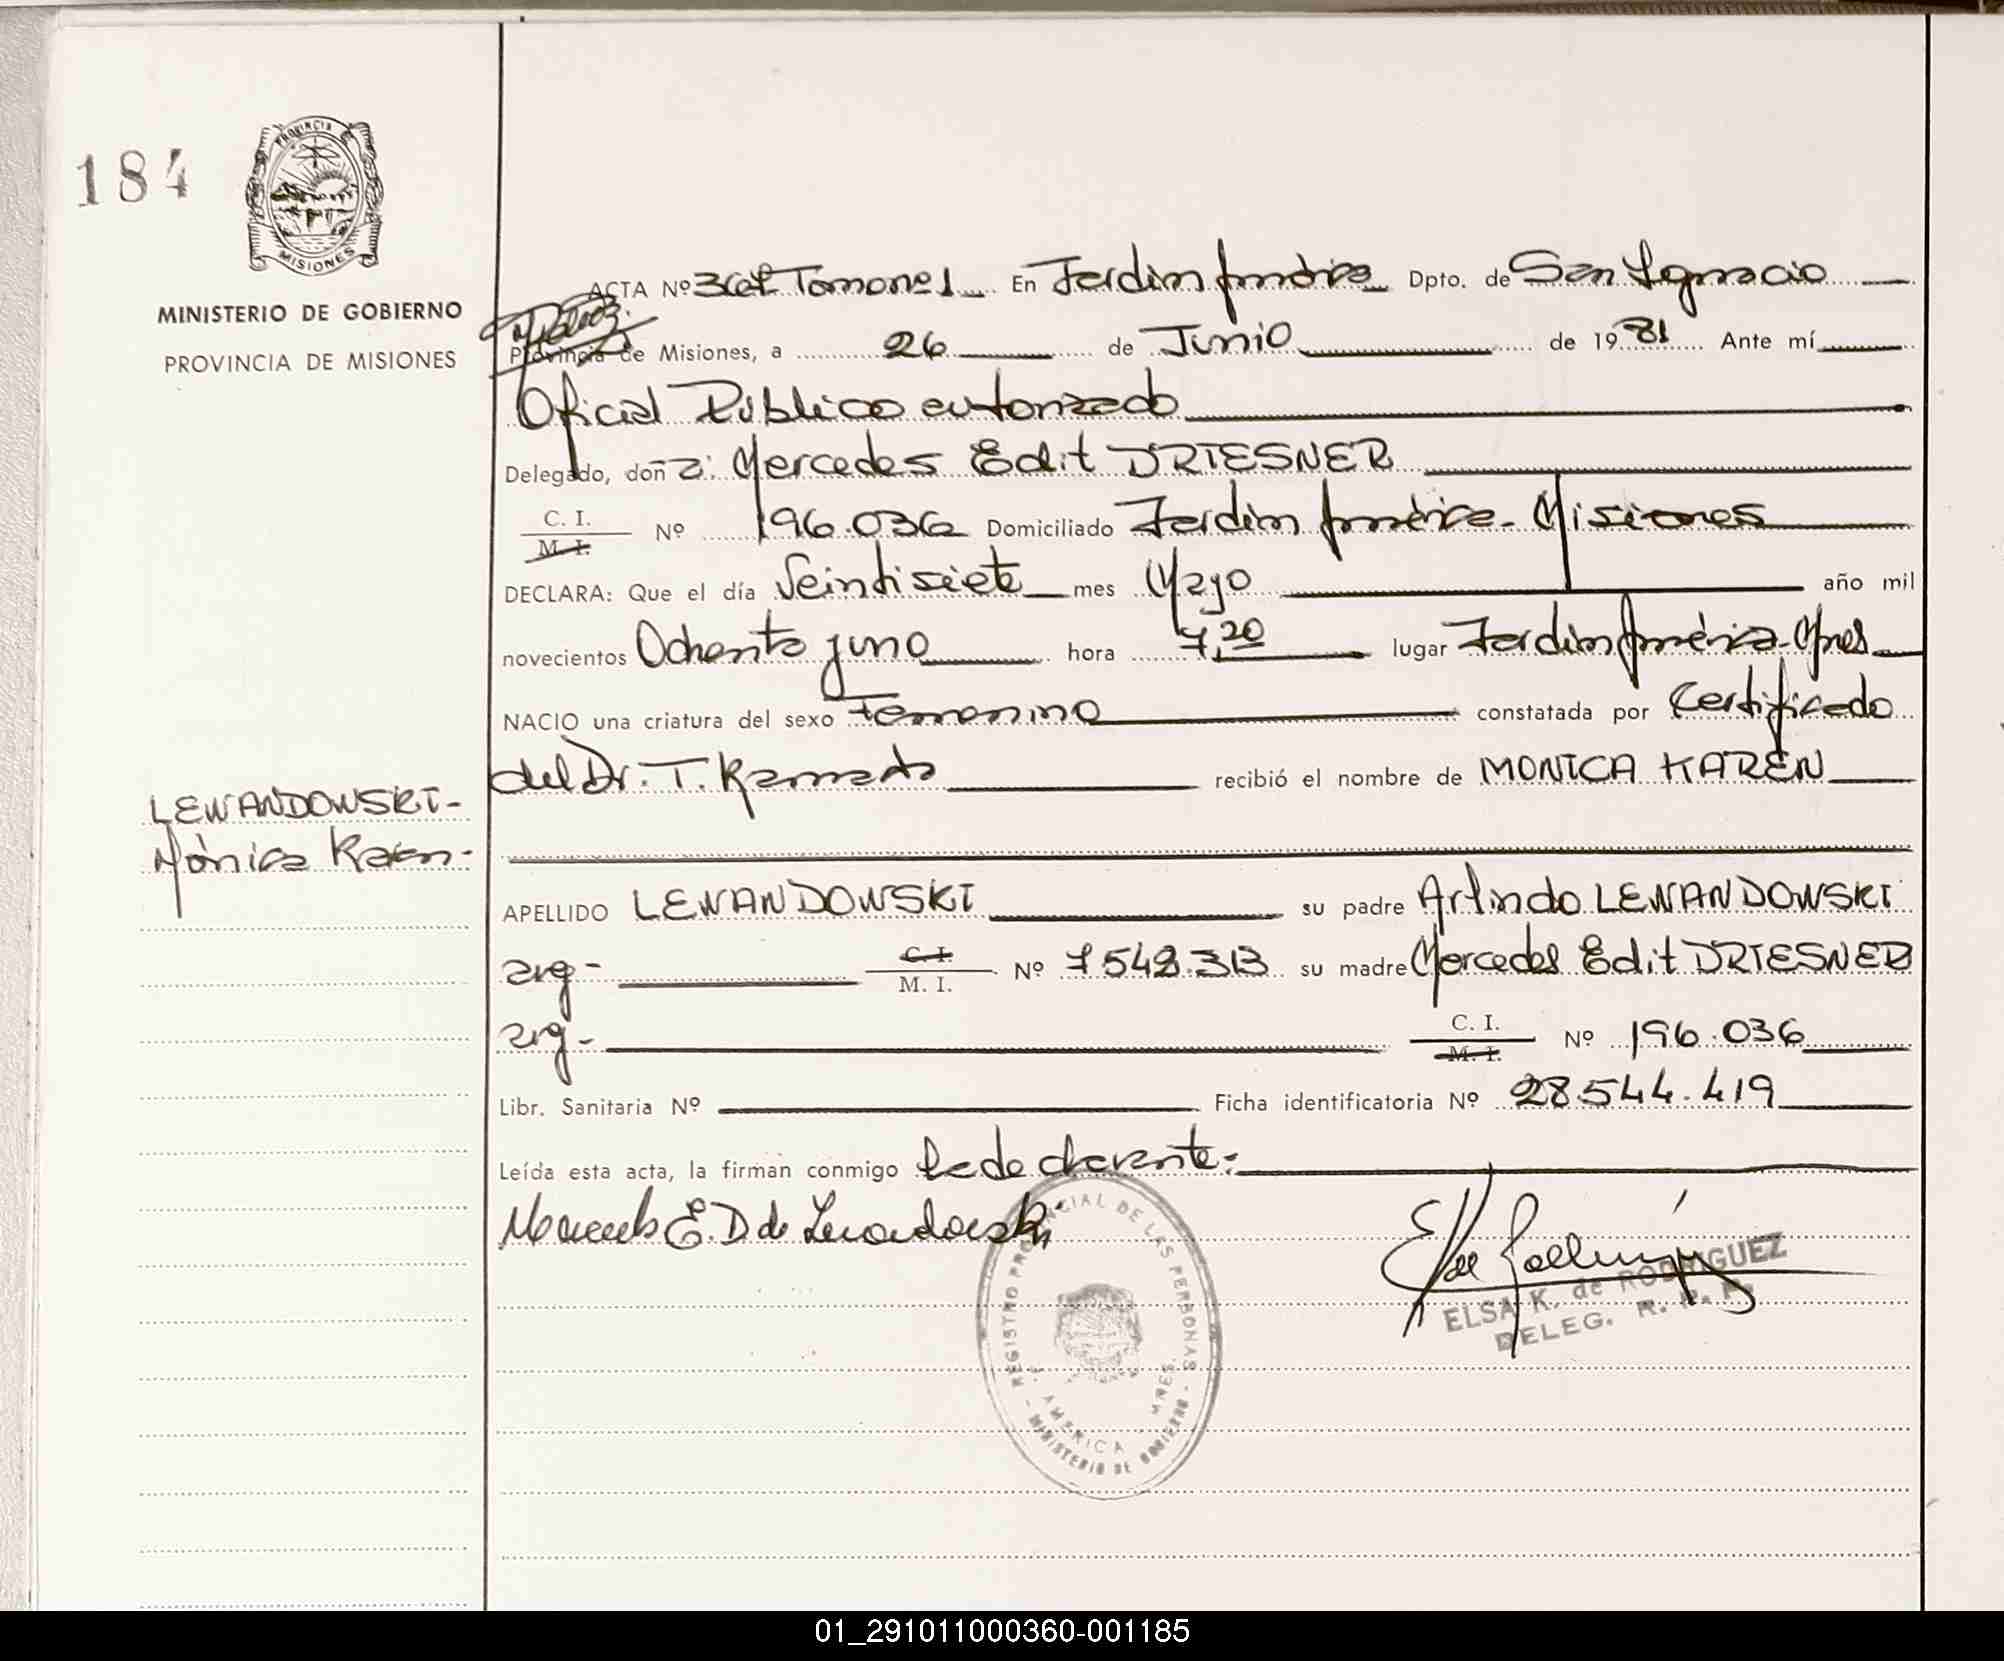 184
PROVINCIA
MISIONES
MINISTERIO DE GOBIERNO
PROVINCIA DE MISIONES
ACTA Nº Tomo nº 1 En Jardin América Dpto. de San Ignacio
Provincia de Misiones, a 26 de Junio de 1981 Ante mí
Oficial Público autorizado
Delegado, don a: Mercedes Edit DRIESNER
C. I.
M. I. Nº 196.036 Domiciliado Jardin América - Misiones
DECLARA: Que el día Veintisiete mes Mayo año mil
novecientos Ochenta y uno hora 7,20 lugar Jardin América - Mnes
NACIO una criatura del sexo Femenino constatada por Certificado
del Dr. T. recibió el nombre de MONICA KAREN
LEWANDOWSKI-
Mónica Karen-
APELLIDO LEWANDOWSKI su padre Arlindo LEWANDOWSKI
arg- C. I.
M. I. Nº 7.548.313 su madre Mercedes Edit DRIESNER
arg- C. I.
M. I. Nº 196.036
Libr. Sanitaria Nº Ficha identificatoria Nº 28.544.419
Leída esta acta, la firman conmigo la declarante:
Mercedes E. D de Lewandowski
ELSA K. de RODRIGUEZ
DELEG. R. P. P.
REGISTRO PROVINCIAL DE LAS PERSONAS
J. AMERICA MNES.
- MINISTERIO DE GOBIERNO -
01_291011000360-001185